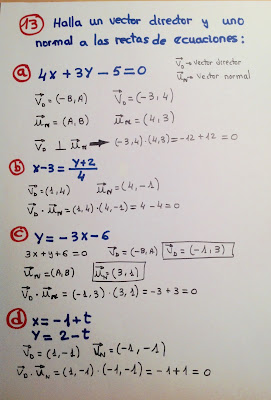 13 Halla un vector director y uno
normal a las rectas de ecuaciones:
a 4x + 3y - 5 = 0
V⃗D → vector director
u⃗N → vector normal
V⃗D = (-B, A) V⃗D = (-3, 4)
u⃗N = (A, B) u⃗N = (4, 3)
V⃗D ⊥ u⃗N → (-3, 4)·(4, 3) = -12 + 12 = 0
b x - 3 = (y + 2)/4
V⃗D = (1, 4) u⃗N = (4, -1)
V⃗D · u⃗N = (1, 4)·(4, -1) = 4 - 4 = 0
c y = -3x - 6
3x + y + 6 = 0 V⃗D = (-B, A) V⃗D = (-1, 3)
u⃗N = (A, B) u⃗N = (3, 1)
V⃗D · u⃗N = (-1, 3)·(3, 1) = -3 + 3 = 0
d x = -1 + t
y = 2 - t
V⃗D = (1, -1) u⃗N = (-1, -1)
V⃗D · u⃗N = (1, -1)·(-1, -1) = -1 + 1 = 0